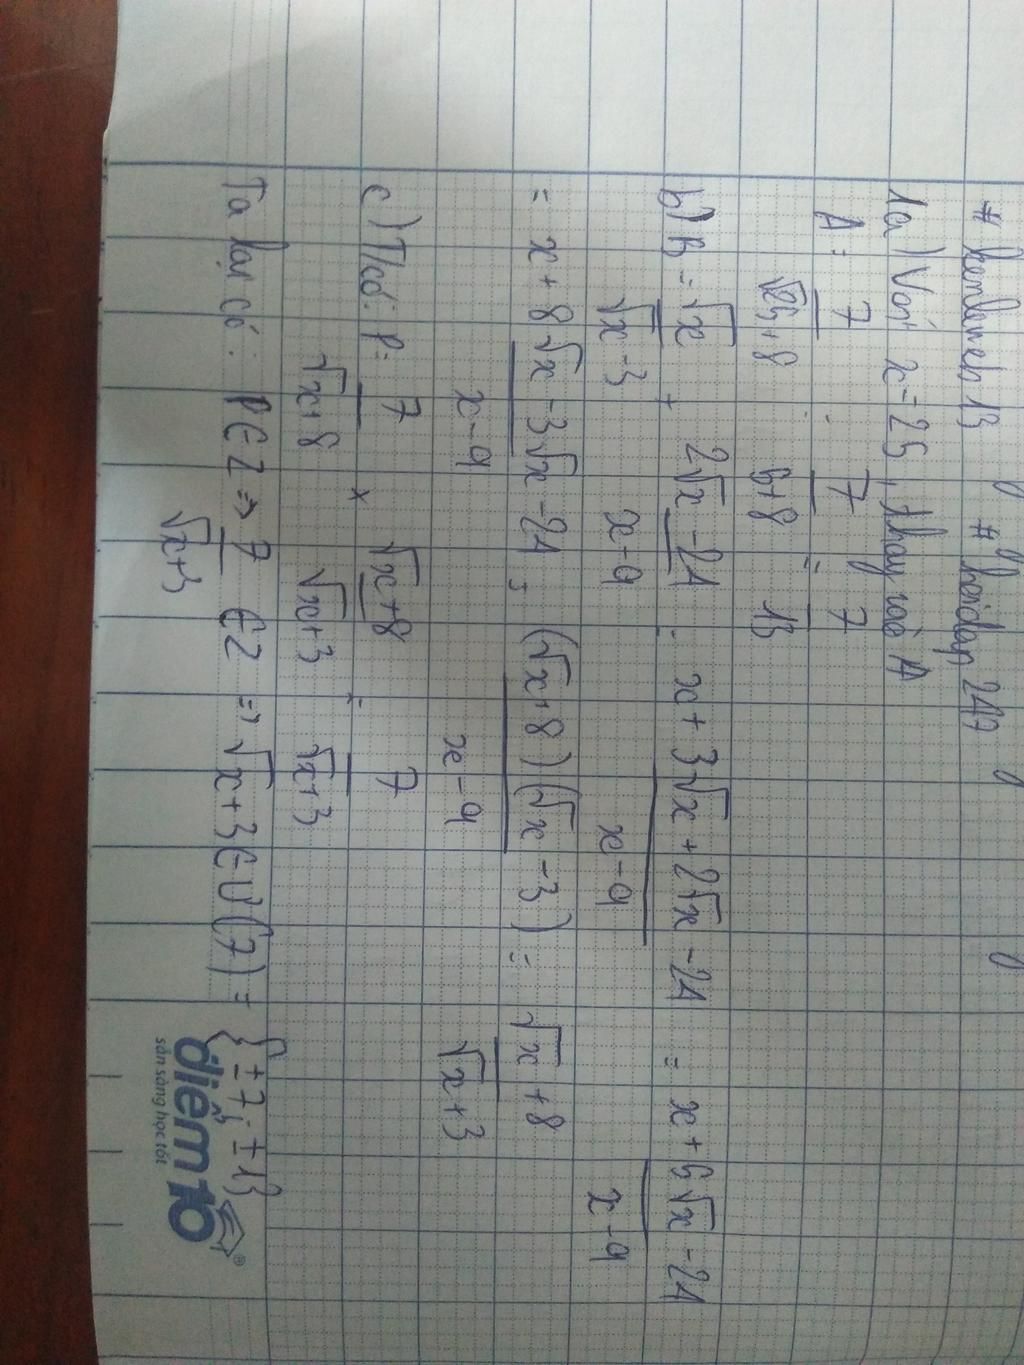 # hoidap 247
1a) Với x = 25, thay vào A
A = 7/(√25+8) = 7/(5+8) = 7/13
b) B = √x/(√x-3) + (2√x-24)/(x-9) = (x+3√x+2√x-24)/(x-9) = (x+5√x-24)/(x-9)
= (x+8√x-3√x-24)/(x-9) = ((√x+8)(√x-3))/(x-9) = (√x+8)/(√x+3)
c) T/có: P = 7/(√x+8) × (√x+8)/(√x+3) = 7/(√x+3)
Ta lại có: P∈Z => 7/(√x+3) ∈Z => √x+3∈Ư(7) = {±7; ±1}
điểm10®
sẵn sàng học tốt